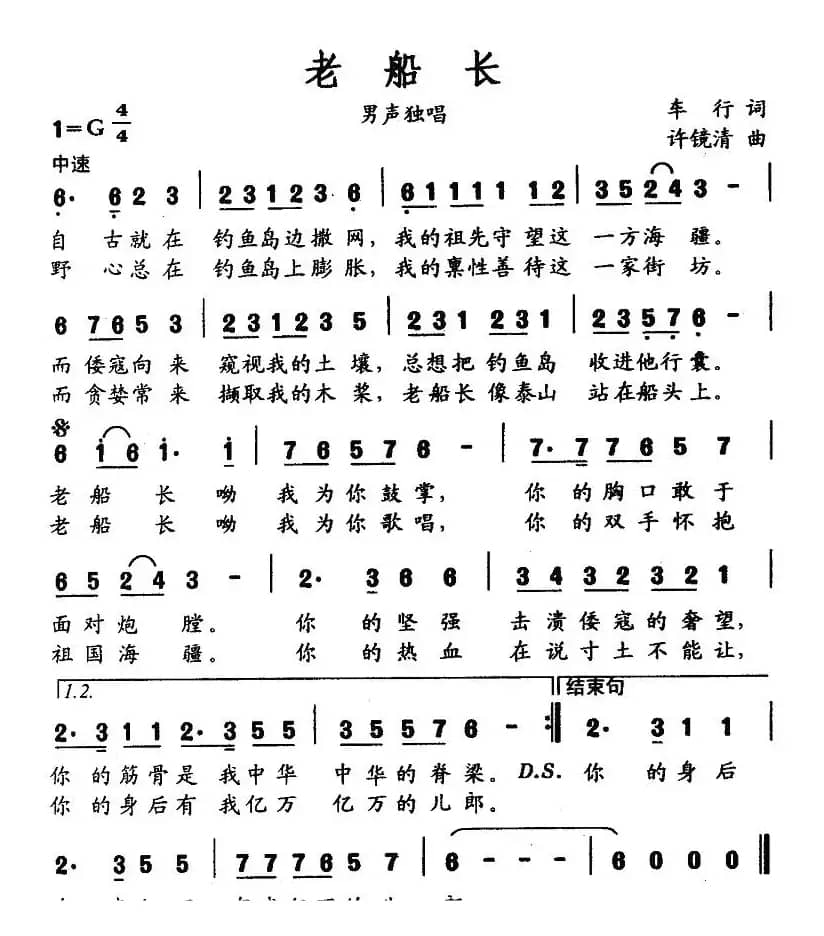 老 船 长
男声独唱
车 行 词
许镜清 曲
1=G 4/4
中速
6· 6 2 3 | 2 3 1 2 3 6 | 6 1 1 1 1 1 2 | 3 5 2 4 3 - |
自 古就在 钓鱼岛边撒网，我的祖先守望这 一方海疆。
野 心总在 钓鱼岛上膨胀，我的禀性善待这 一家街坊。
6 7 6 5 3 | 2 3 1 2 3 5 | 2 3 1 2 3 1 | 2 3 5 7 6 - |
而倭寇向来 窥视我的土壤，总想把钓鱼岛 收进他行囊。
而贪婪常来 撷取我的木桨，老船长像泰山 站在船头上。
6 1 6 1· 1 | 7 6 5 7 6 - | 7· 7 7 6 5 7 |
老船长呦 我为你鼓掌， 你的胸口敢于
老船长呦 我为你歌唱， 你的双手怀抱
6 5 2 4 3 - | 2· 3 6 6 | 3 4 3 2 3 2 1 |
面对炮膛。 你的坚强 击溃倭寇的奢望，
祖国海疆。 你的热血 在说寸土不能让，
1.2. 结束句
2· 3 1 1 2· 3 5 5 | 3 5 5 7 6 - :‖ 2· 3 1 1 |
你的筋骨是我中华 中华的脊梁。D.S. 你的身后
你的身后有我亿万 亿万的儿郎。
2· 3 5 5 | 7 7 7 6 5 7 | 6 - - - | 6 0 0 0 ‖